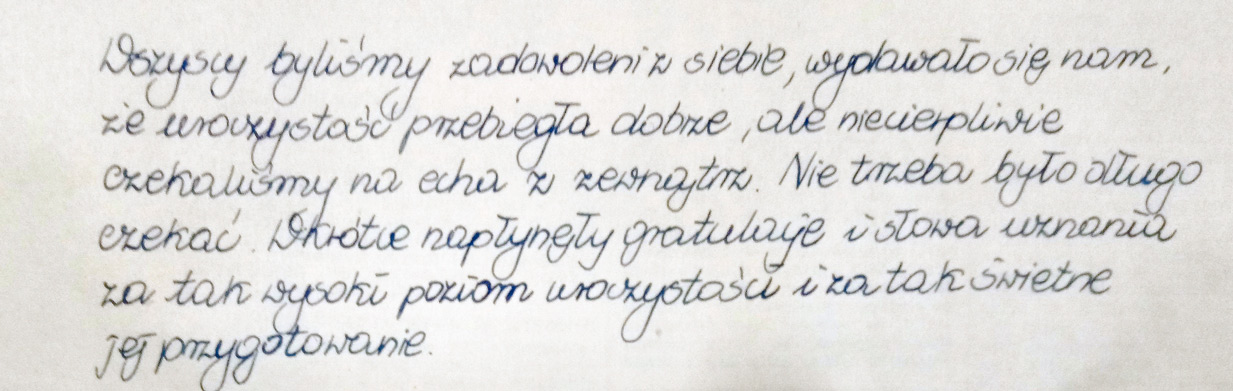 Wszyscy byliśmy zadowoleni z siebie, wydawało się nam,
że uroczystość przebiegła dobrze, ale niecierpliwie
czekaliśmy na echa z zewnątrz. Nie trzeba było długo
czekać. Wkrótce napłynęły gratulacje i słowa uznania
za tak wysoki poziom uroczystości i za tak świetne
jej przygotowanie.